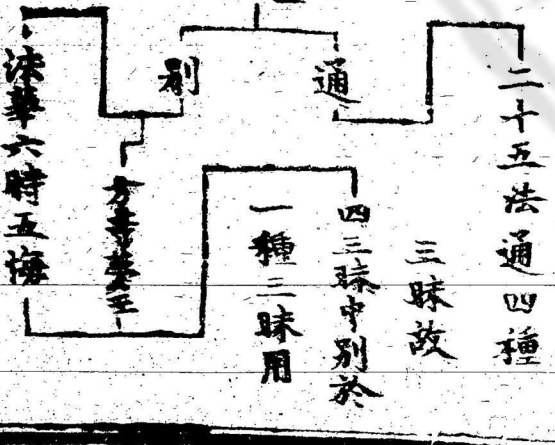 二十五法通四種
三昧故
通
四三昧中別於
一種三昧用
別
方等
法華六時五悔